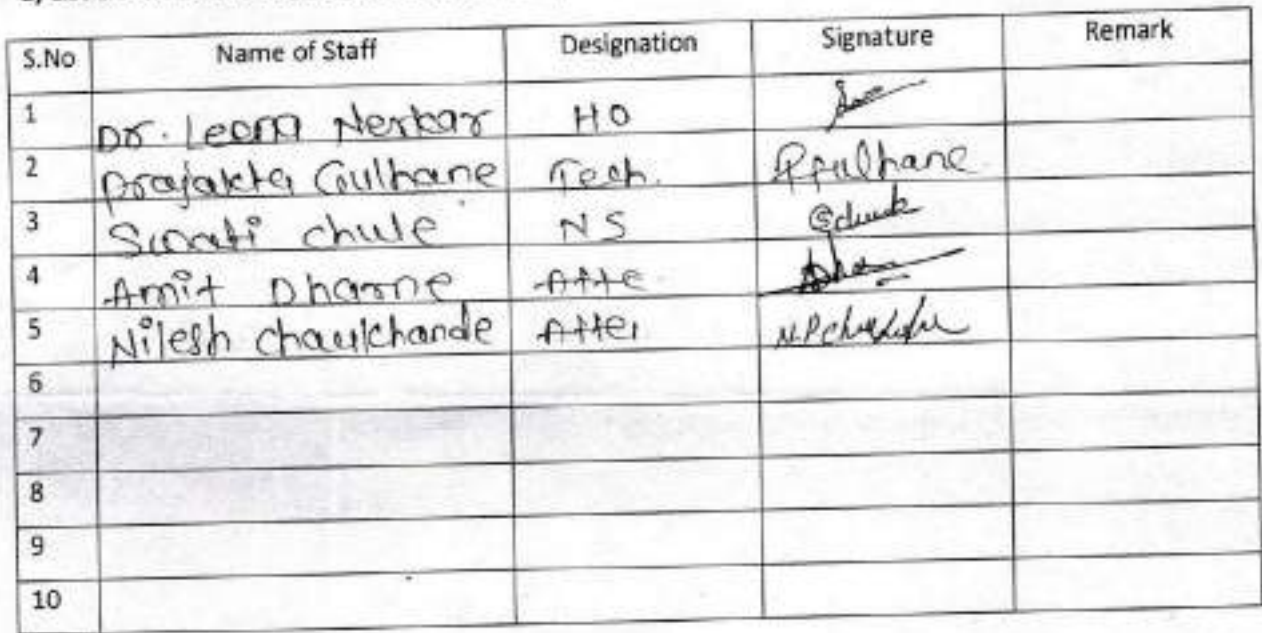 S.No Name of Staff Designation Signature Remark
1 Dr. Leena Nerkar HO
2 Prajakta Gulhane Tech. PGulhane
3 Swati Chule NS
4 Amit Dharne Atte.
5 Nilesh Chaukhande Atte.
6
7
8
9
10